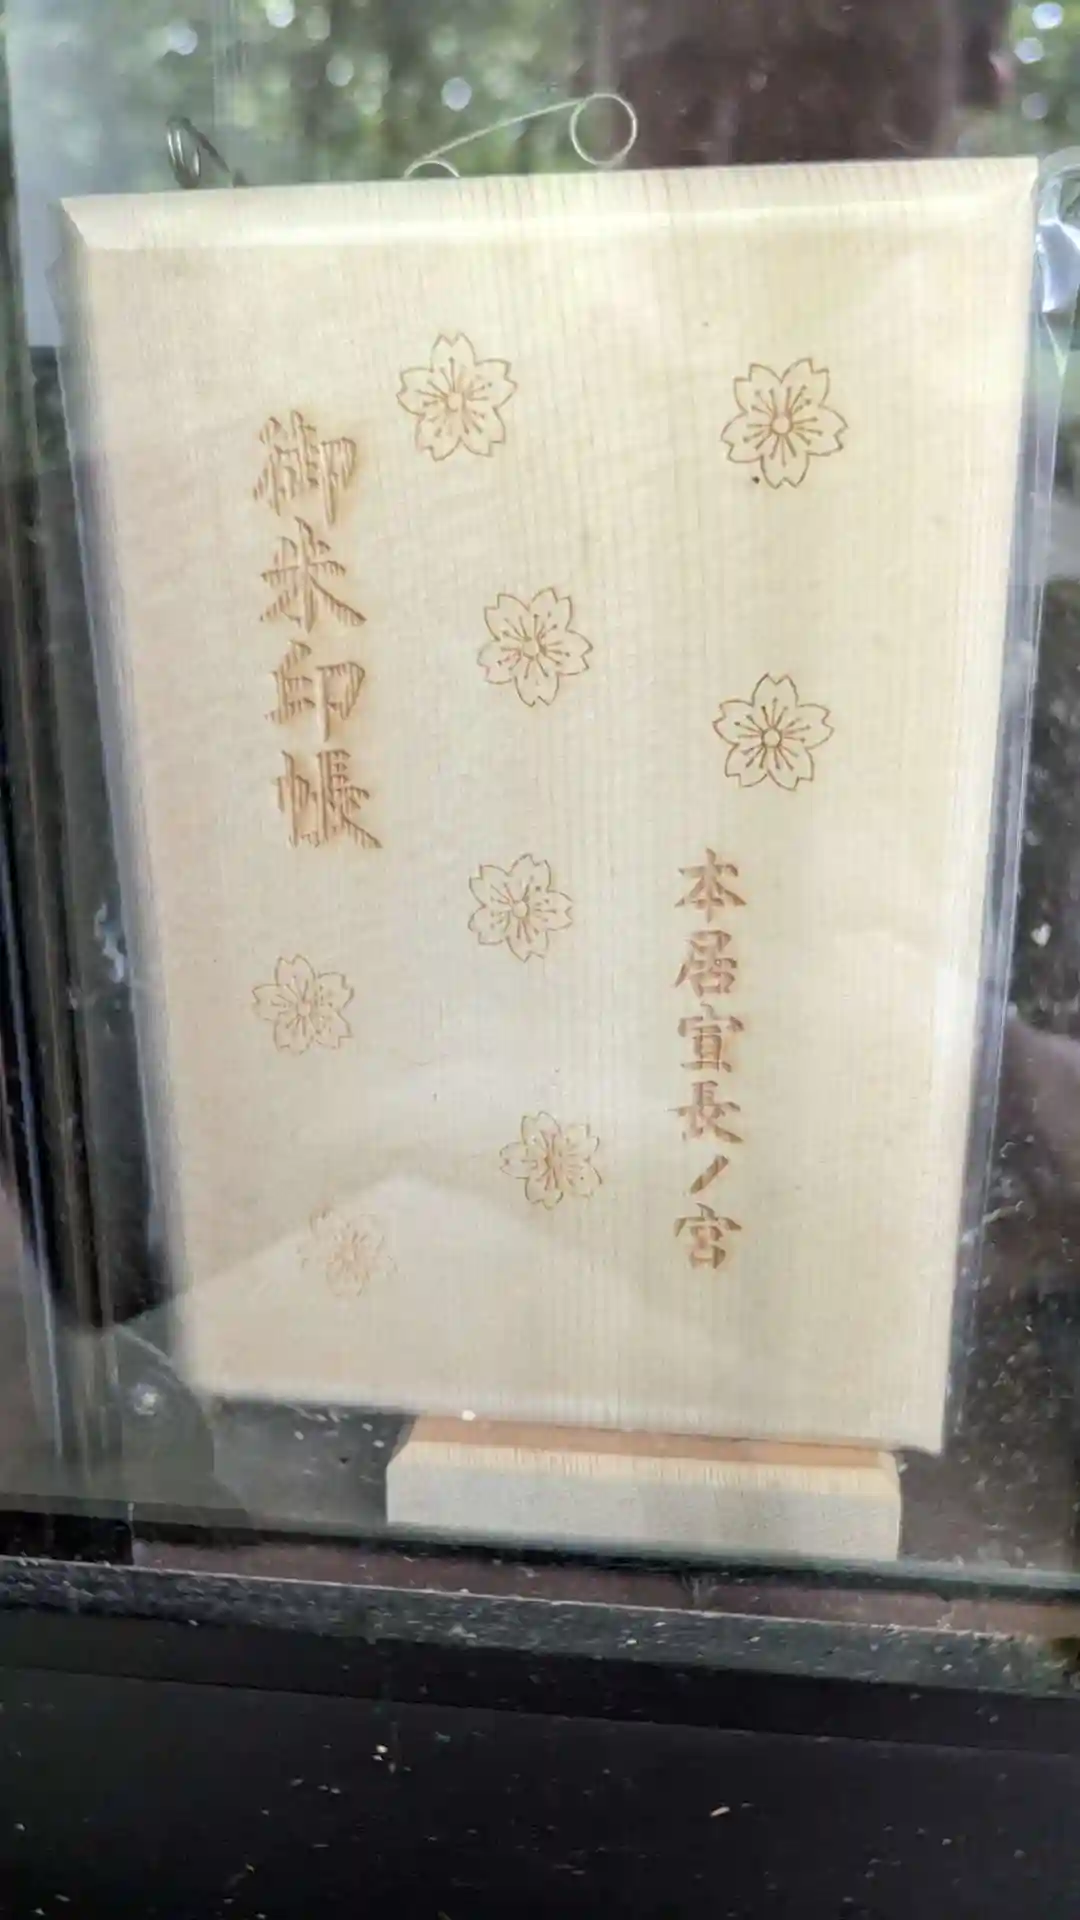 本居宣長ノ宮
御朱印帳